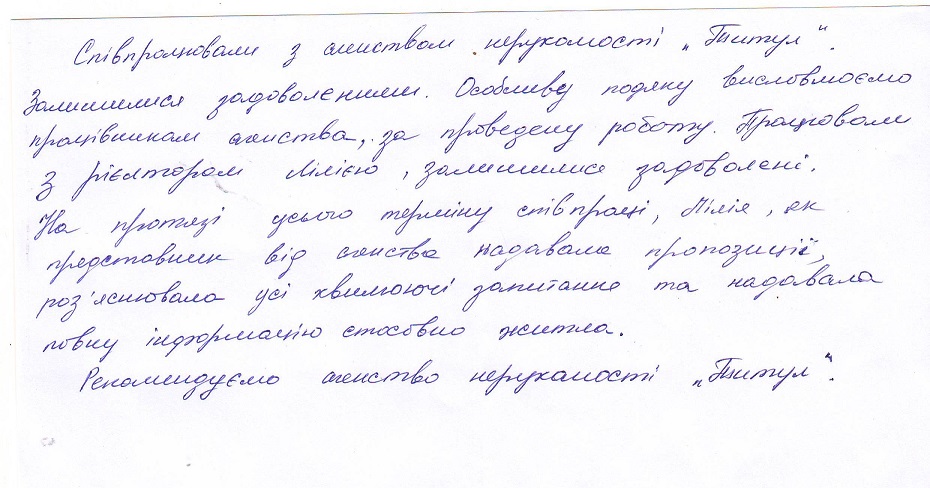 Співпрацювали з агенством нерухомості „Титул".
Залишилися задоволеними. Особливу подяку висловлюємо
працівникам агенства, за проведену роботу. Працювали
з рієлтором Лілією, залишилися задоволені.
На протязі усього терміну співпраці, Лілія, як
представник від агенства надавала пропозиції,
роз'яснювала усі хвилюючі запитання та надавала
повну інформацію стосовно житла.
Рекомендуємо агенство нерухомості „Титул".